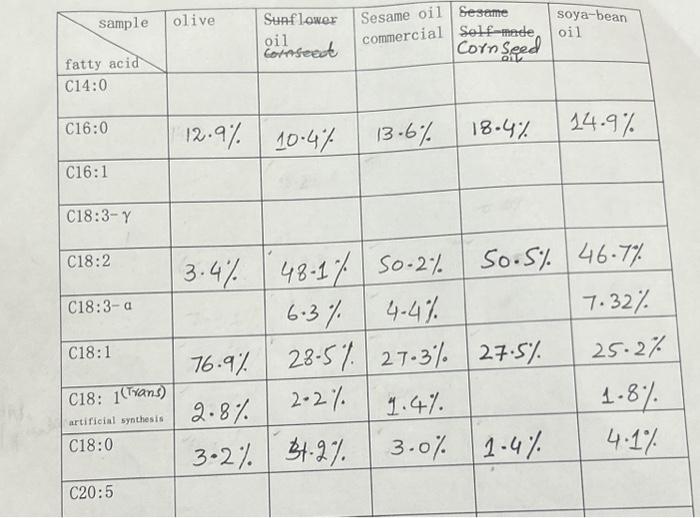 sample olive Sunflower oil Cornseed Sesame oil commercial Sesame Self-made Corn Seed oil soya-bean oil
fatty acid
C14:0
C16:0 12.9% 10.4% 13.6% 18.4% 14.9%
C16:1
C18:3-γ
C18:2 3.4% 48.1% 50.2% 50.5% 46.7%
C18:3-α 6.3% 4.4% 7.32%
C18:1 76.9% 28.5% 27.3% 27.5% 25.2%
C18: 1(Trans) 2.8% 2.2% 1.4% 1.8%
artificial synthesis
C18:0 3.2% 3.0% 1.4% 4.1%
C20:5